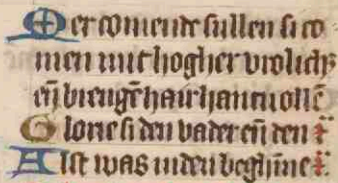 Mer comende sullen si co
men mit hogher vrolichꝫ
eñ brengē hair hantuollē
Glorie si den vader eñ den
Alst was inden beghīne